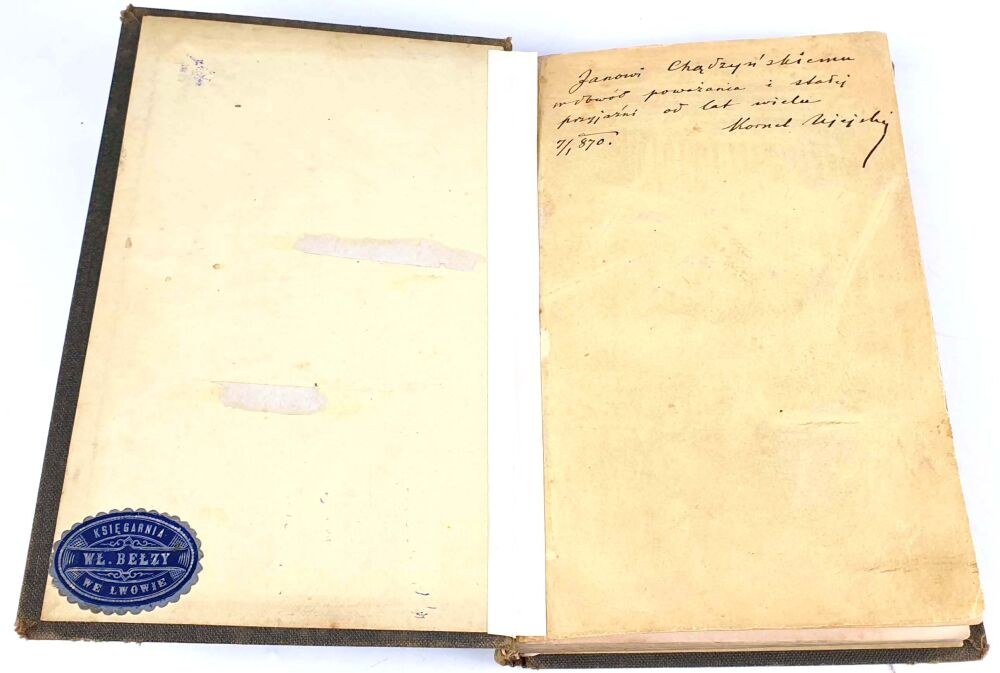 KSIĘGARNIA
WŁ. BEŁZY
WE LWOWIE
Janowi Chądzyńskiemu
w dowód poważania i stałej
przyjaźni od lat wielu
Kornel Ujejski
7/1 870.